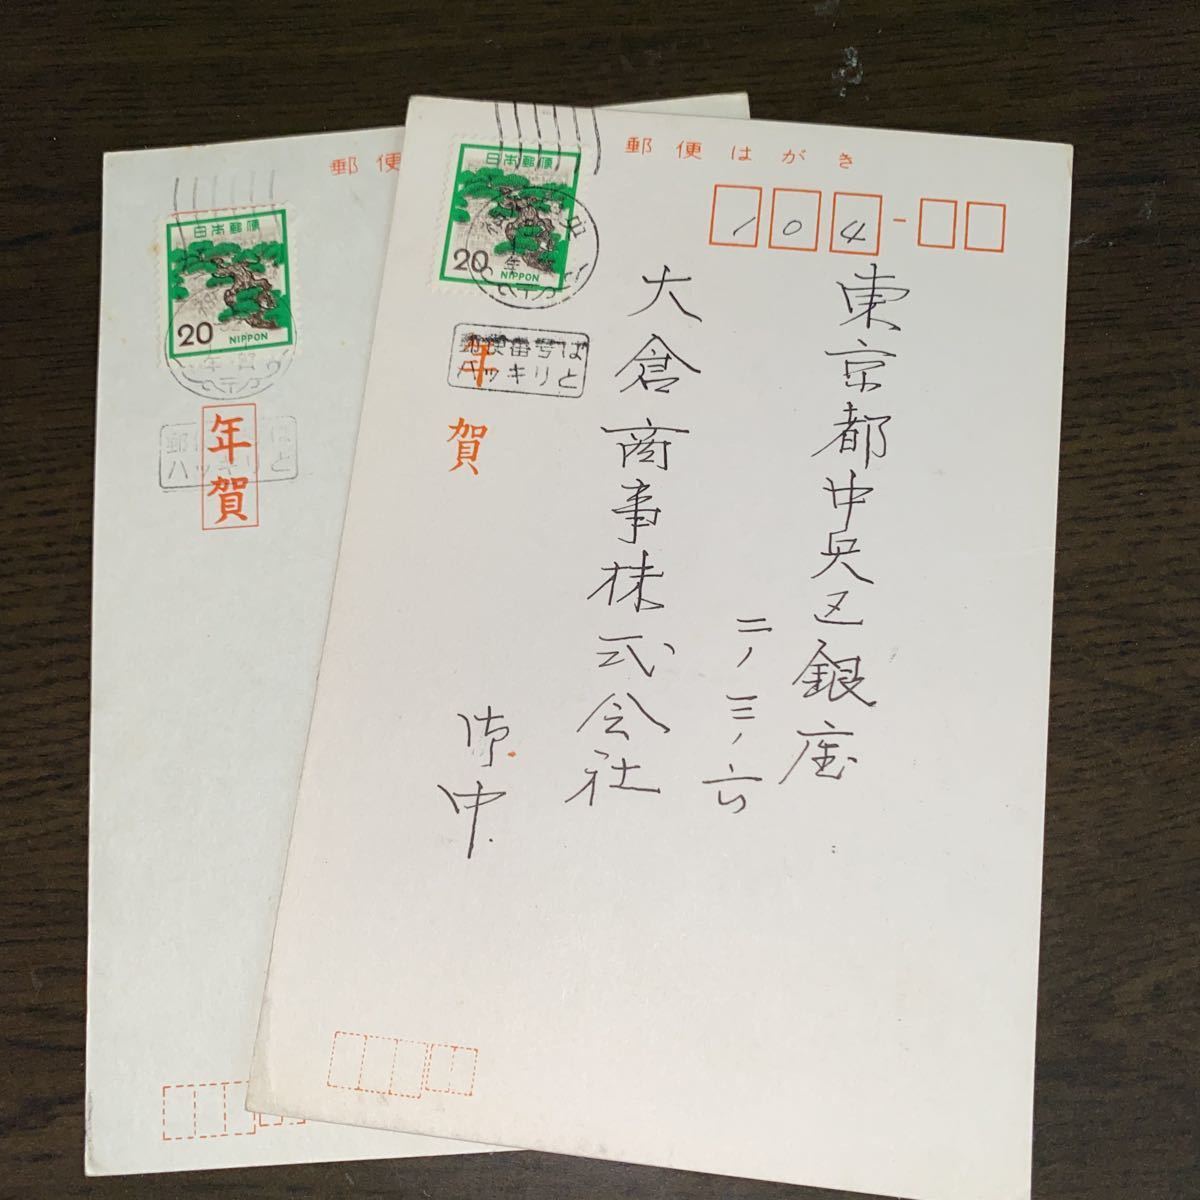 郵便はがき
104
東京都中央区銀座
二ノ三ノ六
大倉商事株式会社
御中
日本郵便
20
NIPPON
郵便番号は
ハッキリと
年賀
郵便
日本郵便
20
NIPPON
年賀
郵便番号は
ハッキリと